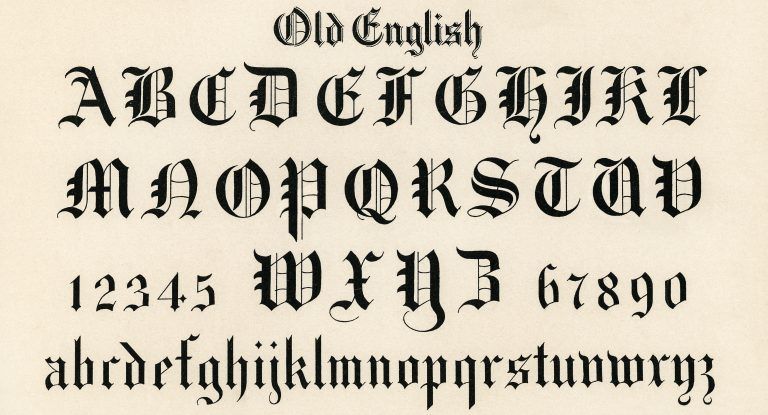 Old English
ABCDEFGHIKL
MNOPQRSTUV
12345 WXYZ 67890
abcdefghijklmnopqrstuvwxyz